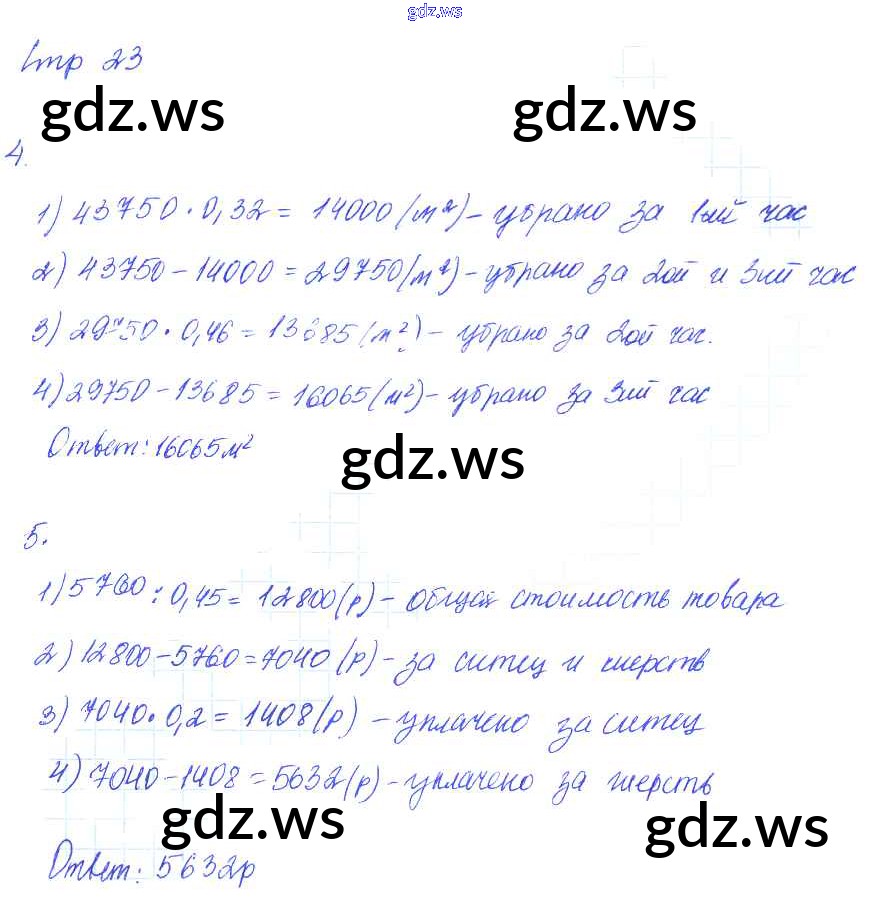 gdz.ws
Стр 23
gdz.ws gdz.ws
4.
1) 43750 · 0,32 = 14000 (м²) - убрано за 1ый час
2) 43750 - 14000 = 29750 (м²) - убрано за 2ой и 3ий час
3) 29750 · 0,46 = 13685 (м²) - убрано за 2ой час.
4) 29750 - 13685 = 16065 (м²) - убрано за 3ий час
Ответ: 16065 м²
gdz.ws
5.
1) 5760 : 0,45 = 12800 (р) - общая стоимость товара
2) 12800 - 5760 = 7040 (р) - за ситец и шерств
3) 7040 · 0,2 = 1408 (р) - уплачено за ситец
4) 7040 - 1408 = 5632 (р) - уплачено за шерсть
gdz.ws gdz.ws
Ответ: 5632р